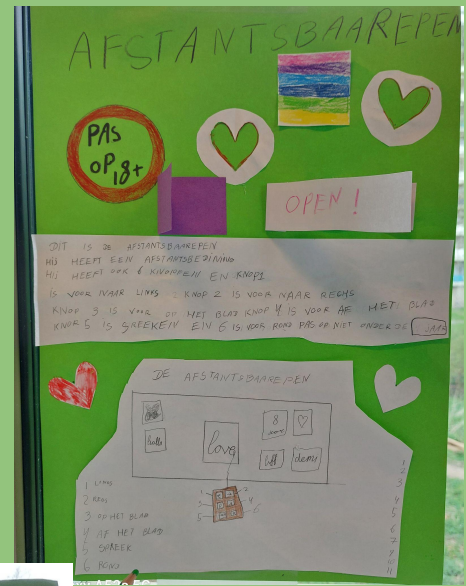 AFSTANTSBAAREPEN
PAS
OP
18+
OPEN!
DIT IS DE AFSTANTSBAAREPEN
HIJ HEEFT EEN AFSTANTSBEDINING
HIJ HEEFT OOK 6 KNOPPEN EN KNOP1
IS VOOR NAAR LINKS KNOP 2 IS VOOR NAAR REGHS
KNOP 3 IS VOOR OP HET BLAD KNOP 4 IS VOOR AF HET BLAD
KNOP 5 IS SPREEKEN EIN 6 IS VOOR ROND PAS OP NIET ONDER DE
DE AFSTANTSBAAREPEN
hello
love
8
demi
1 LINKS
2 REGS
3 OP HET BLAD
4 AF HET BLAD
5 SPREEK
6 ROND
1
2
3
4
5
6
1
2
3
4
5
6
7